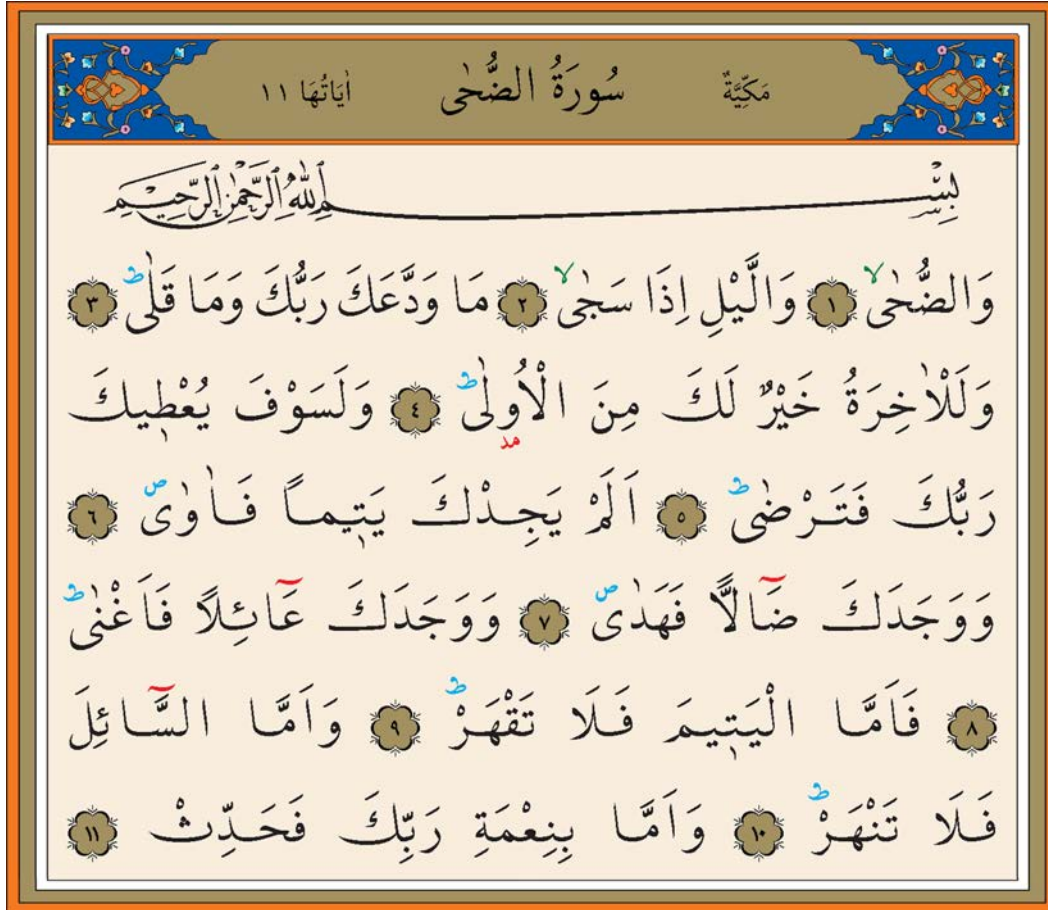 مَكِّيَّةٌ سُورَةُ الضُّحٰى اٰيَاتُهَا ١١
بِسْمِ اللّٰهِ الرَّحْمٰنِ الرَّحِيمِ
وَالضُّحٰىۙ ﴿١﴾ وَالَّيْلِ اِذَا سَجٰىۙ ﴿٢﴾ مَا وَدَّعَكَ رَبُّكَ وَمَا قَلٰىؕ ﴿٣﴾
وَلَلْاٰخِرَةُ خَيْرٌ لَكَ مِنَ الْاُو۫لٰىؕ ﴿٤﴾ وَلَسَوْفَ يُعْطٖيكَ
مد
رَبُّكَ فَتَرْضٰىؕ ﴿٥﴾ اَلَمْ يَجِدْكَ يَتٖيماً فَاٰوٰىࣕ ﴿٦﴾
وَوَجَدَكَ ضَٓالاًّ فَهَدٰىࣕ ﴿٧﴾ وَوَجَدَكَ عَٓائِلاً فَاَغْنٰىؕ
﴿٨﴾ فَاَمَّا الْيَتٖيمَ فَلَا تَقْهَرْؕ ﴿٩﴾ وَاَمَّا السَّٓائِلَ
فَلَا تَنْهَرْؕ ﴿١٠﴾ وَاَمَّا بِنِعْمَةِ رَبِّكَ فَحَدِّثْ ﴿١١﴾